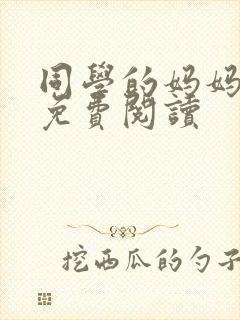 同學的妈妈
免費閱讀
挖西瓜的勺子